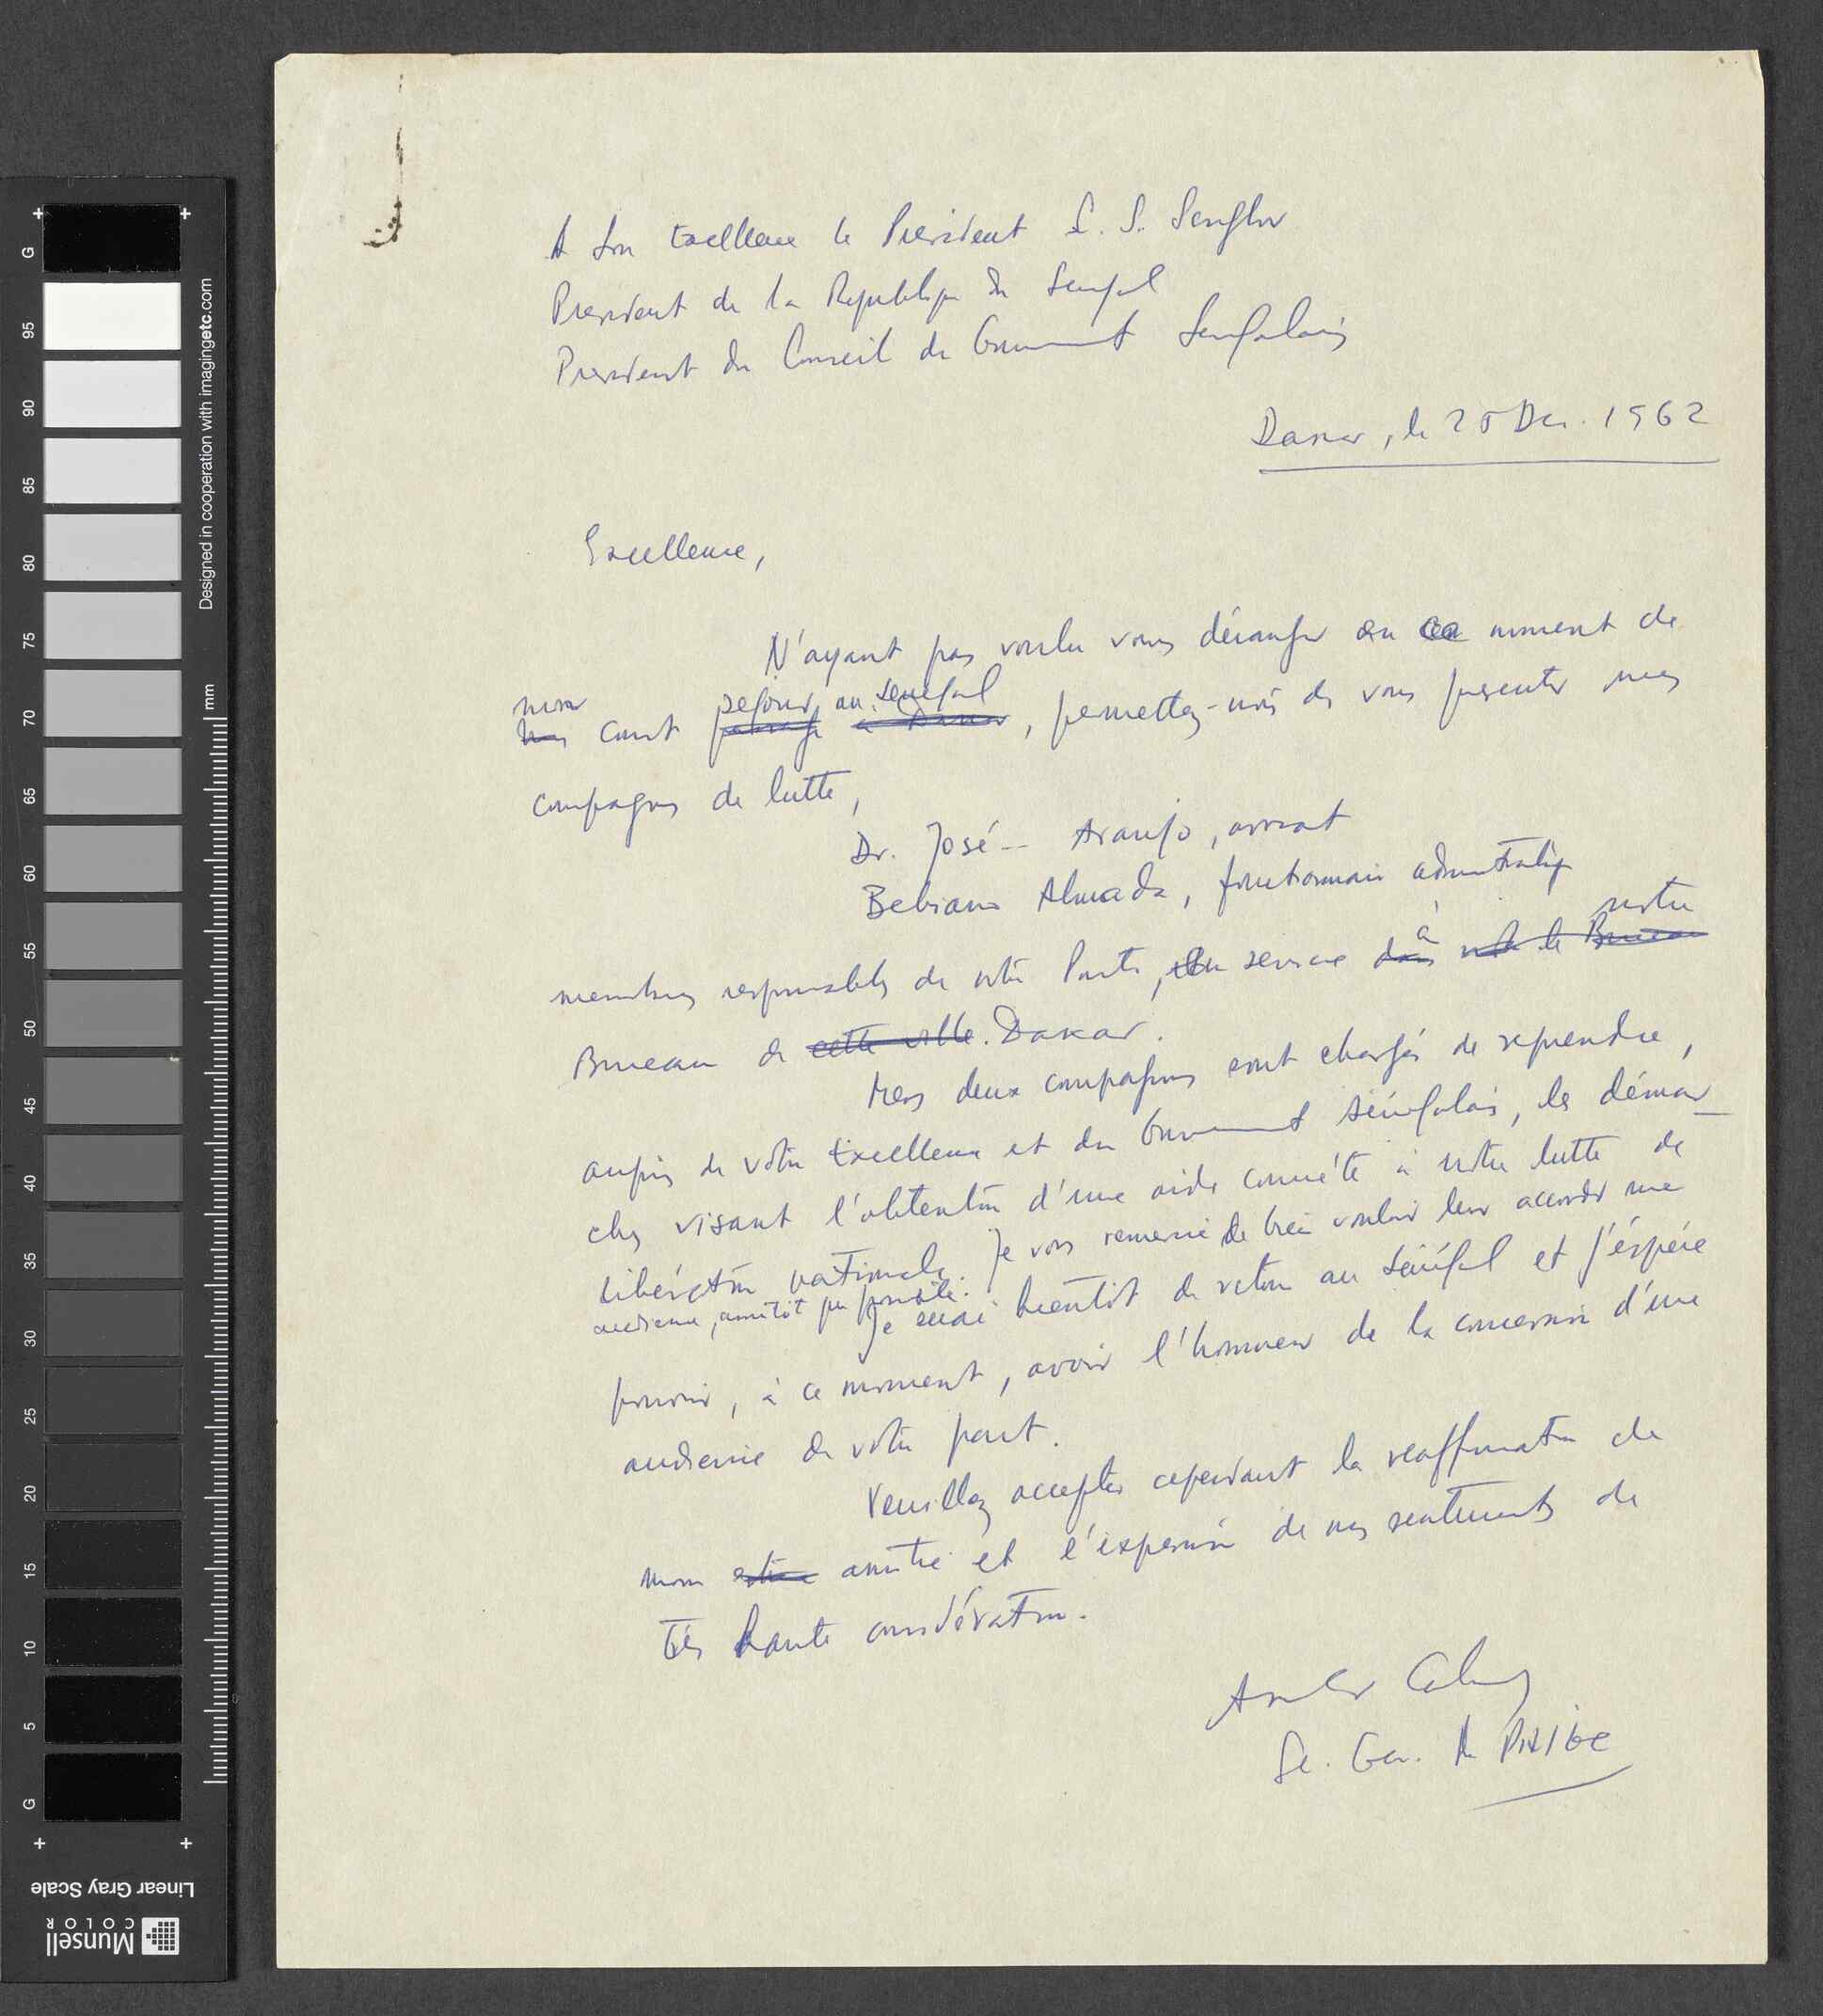 A Son Excellence le President L. S. Senghor
President de la Republique du Senegal
President du Conseil de Gouvernement Senegalais
Dakar, le 20 Dec. 1962
Excellence,
N'ayant pas voulu vous déranger en ce moment de
mon court séjour au Senegal, permettez-moi de vous presenter mes
compagnons de lutte,
Dr. José Araujo, avocat
Bebiano Almada, fonctionnaire administratif
membres responsables de notre Parti, en service à notre
Bureau de cette ville. Dakar.
Mes deux compagnons sont chargés de reprendre,
auprès de votre Excellence et du Gouvernement Sénégalais, les démar-
ches visant l'obtention d'une aide concrète à notre lutte de
libération nationale. Je vous remercie de bien vouloir leur accorder une
audience, aussitôt que possible.
Je serai bientôt de retour au Sénégal et j'éspére
pouvoir, à ce moment, avoir l'honneur de la concession d'une
audience de votre part.
Veuillez accepter cependant la reaffirmation de
mon amitié et l'expression de mes sentiments de
très haute considération.
Amilcar Cabral
Se. Gen. du PAIGC
G 95 90 85 80 75 70 65 60 55 50 45 40 35 30 25 20 15 10 5 G
mm
Designed in cooperation with imagingetc.com
Linear Gray Scale
Munsell
COLOR